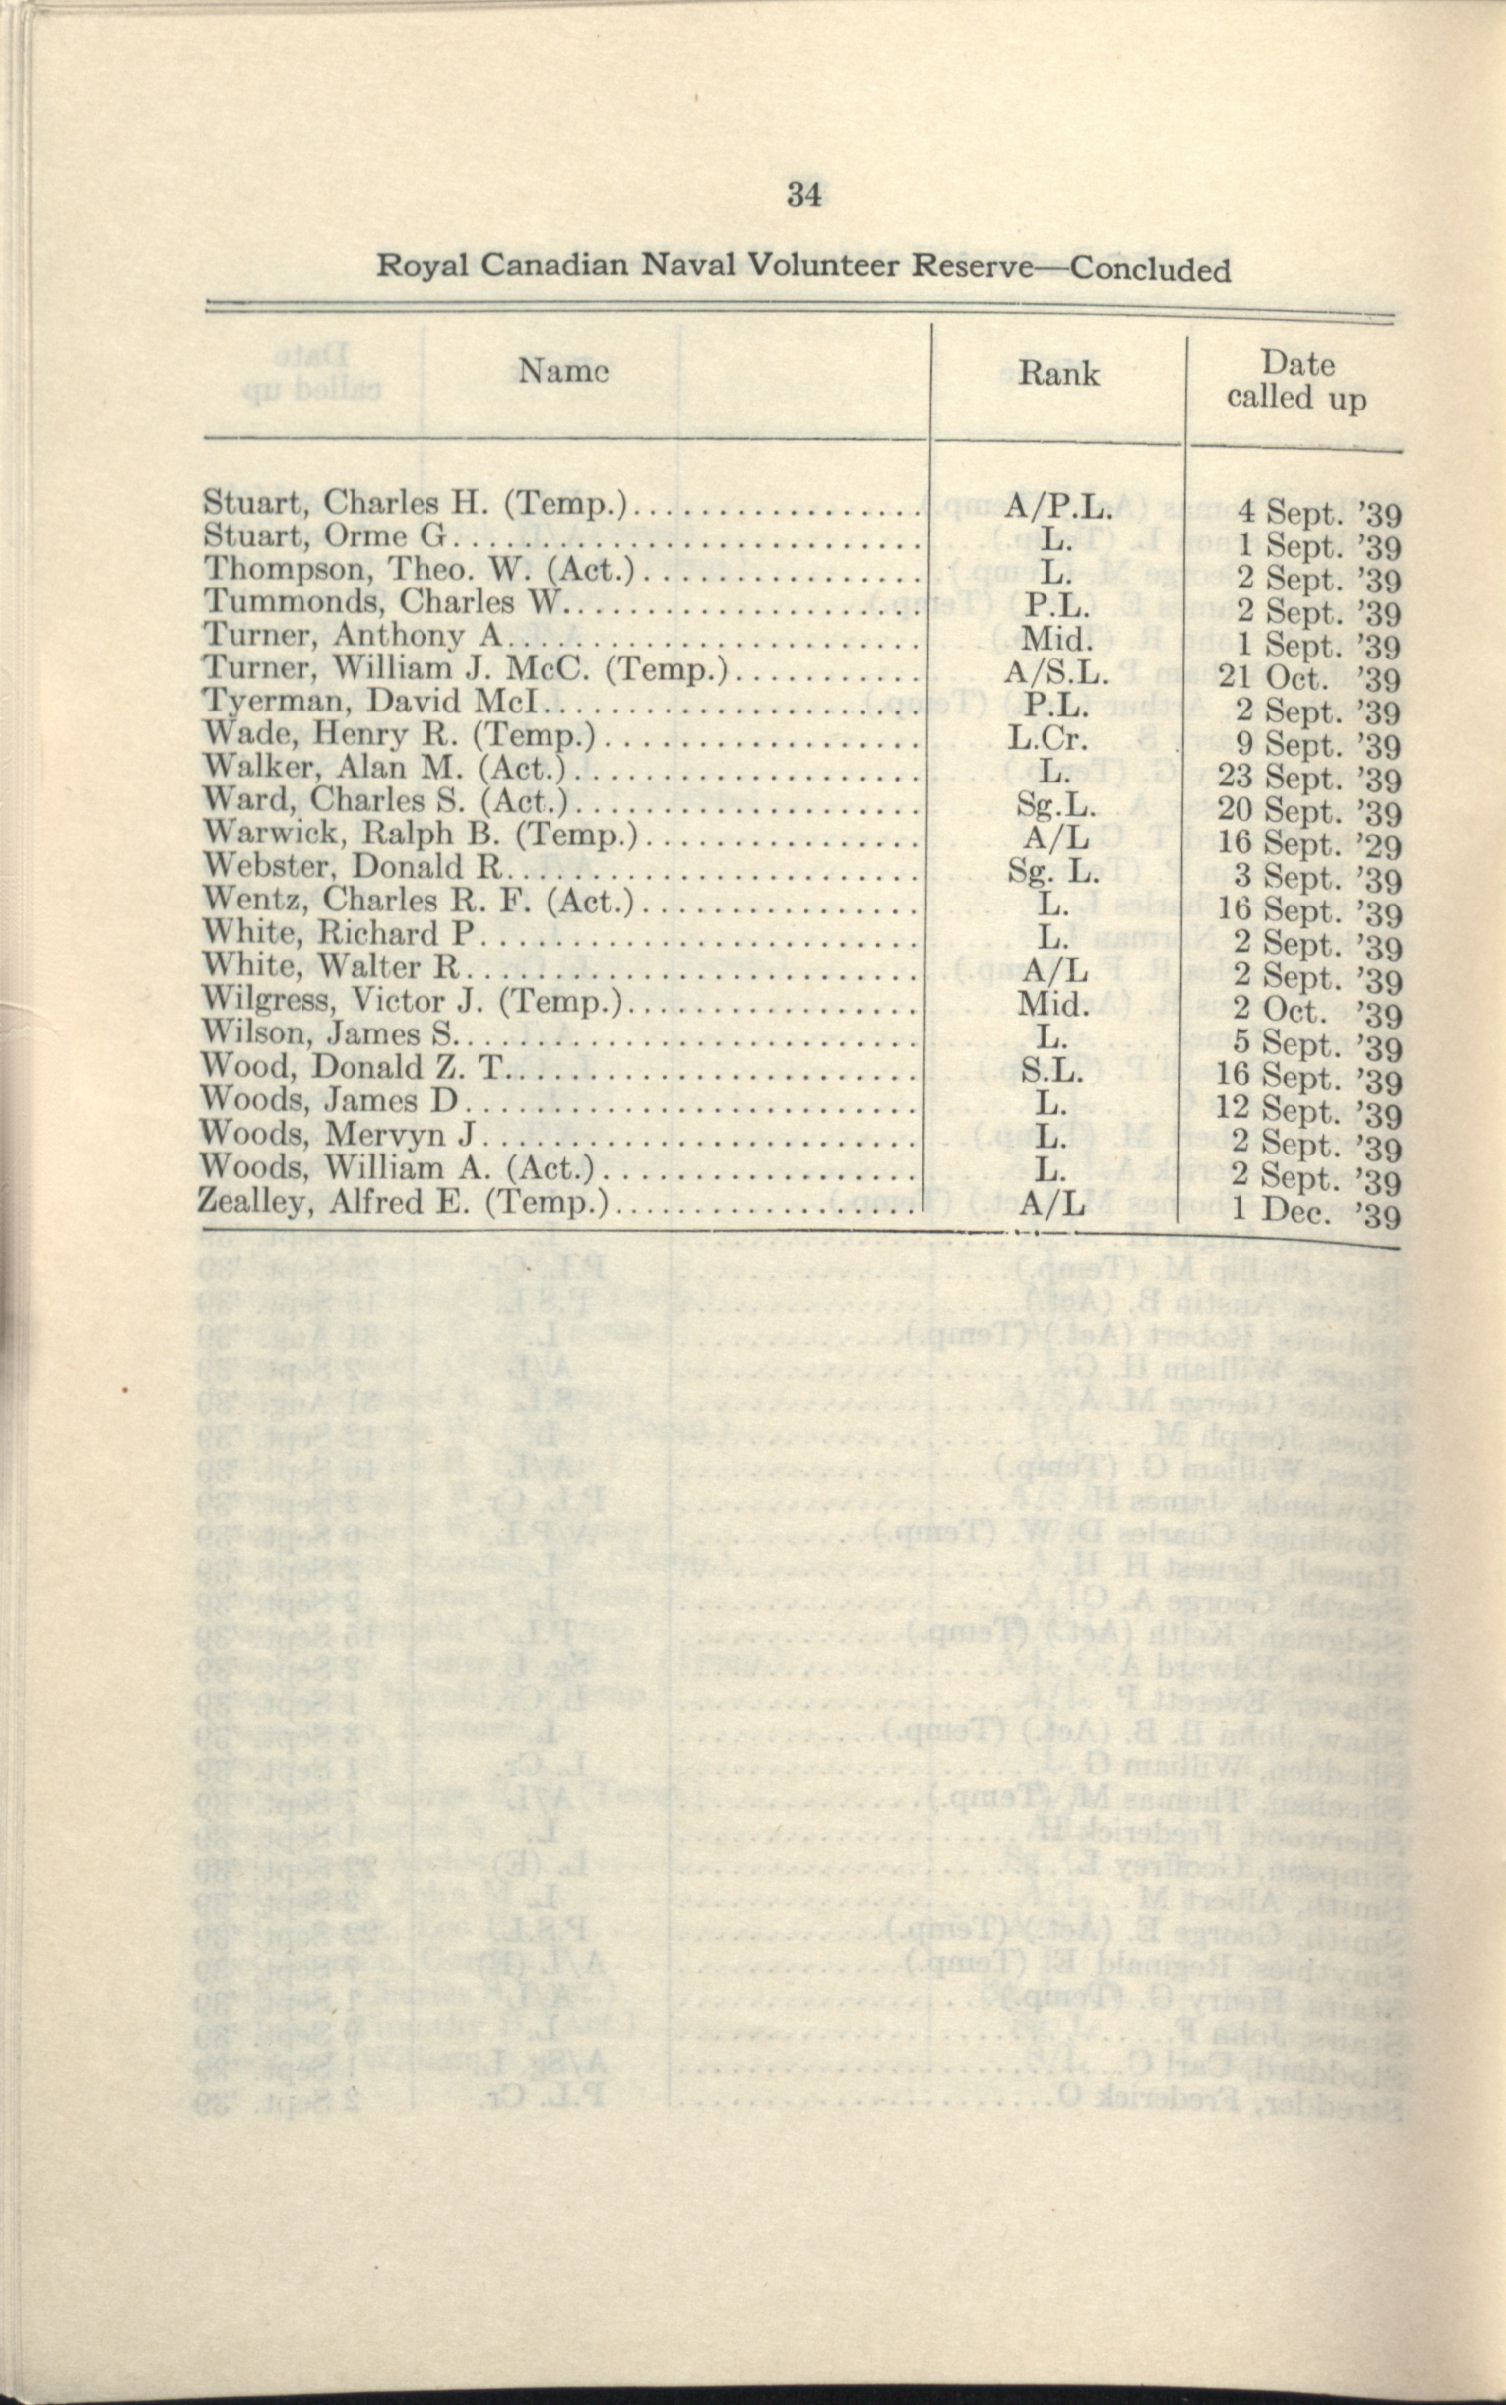 34
Royal Canadian Naval Volunteer Reserve—Concluded
Name Rank Date called up
Stuart, Charles H. (Temp.) A/P.L. 4 Sept. '39
Stuart, Orme G. L. 1 Sept. '39
Thompson, Theo. W. (Act.) L. 2 Sept. '39
Tummonds, Charles W. P.L. 2 Sept. '39
Turner, Anthony A. Mid. 1 Sept. '39
Turner, William J. McC. (Temp.) A/S.L. 21 Oct. '39
Tyerman, David McI. P.L. 2 Sept. '39
Wade, Henry R. (Temp.) L.Cr. 9 Sept. '39
Walker, Alan M. (Act.) L. 23 Sept. '39
Ward, Charles S. (Act.) Sg.L. 20 Sept. '39
Warwick, Ralph B. (Temp.) A/L 16 Sept. '29
Webster, Donald R. Sg. L. 3 Sept. '39
Wentz, Charles R. F. (Act.) L. 16 Sept. '39
White, Richard P. L. 2 Sept. '39
White, Walter R. A/L 2 Sept. '39
Wilgress, Victor J. (Temp.) Mid. 2 Oct. '39
Wilson, James S. L. 5 Sept. '39
Wood, Donald Z. T. S.L. 16 Sept. '39
Woods, James D. L. 12 Sept. '39
Woods, Mervyn J. L. 2 Sept. '39
Woods, William A. (Act.) L. 2 Sept. '39
Zealley, Alfred E. (Temp.) A/L 1 Dec. '39